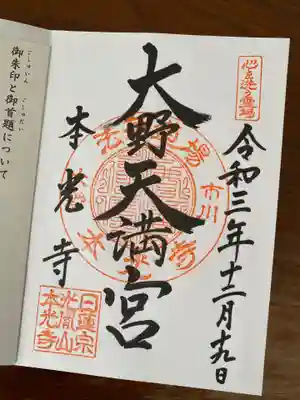 心を洗う霊場
令和三年十二月十九日
大野天満宮
市川
本光寺
日蓮宗
光胤山
本光寺
ごしゅいん ごしゅだい
御朱印と御首題について